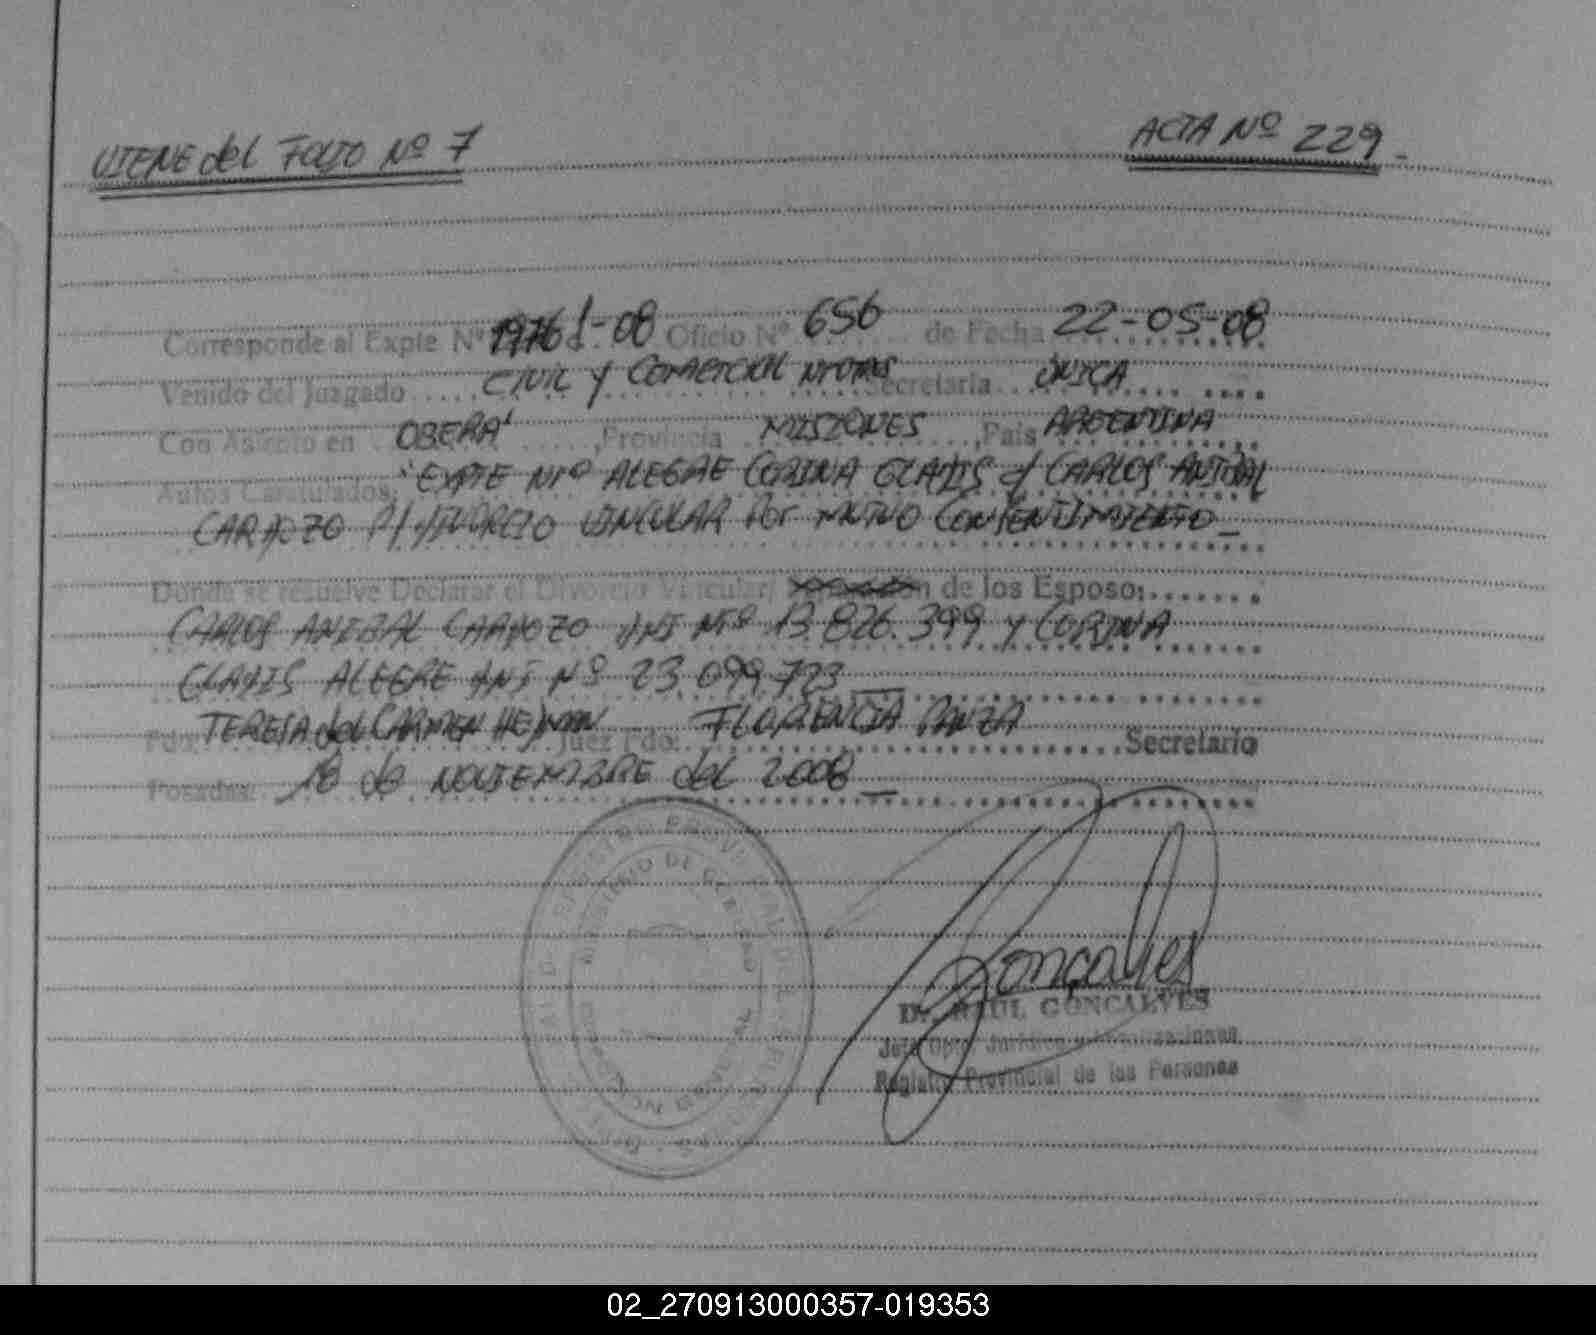 VIENE del FOLIO Nº 7
ACTA Nº 229.-
Corresponde al Expte Nº 1976 -08 Oficio Nº 656 de Fecha 22-05-08
Venido del Juzgado CIVIL Y COMERCIAL Secretaria UNICA
Con Asiento en OBERA' ,Provincia MISIONES ,País ARGENTINA
Autos Caratulados: "EXPTE Nrº ALEGRE CORINA GLADIS c/ CARLOS ANIBAL
CARDOZO P/ DIVORCIO VINCULAR POR MUTUO CONSENTIMIENTO_
Donde se resuelve Declarar el Divorcio Vincular/ de los Esposo:
CARLOS ANIBAL CARDOZO DNI Nrº 13.826.399 Y CORINA
GLADIS ALEGRE DNI Nº 23.099.723
Fdo: TERESA del CARMEN Juez Fdo: FLORENCIA PANZA Secretario
Posadas: 18 de NOVIEMBRE del 2008_
MINISTERIO DE GOBIERNO
Goncalves
Dr. RAUL GONCALVES
Jefe Dpto. Jurídico y Legalizaciones
Registro Provincial de las Personas
02_270913000357-019353